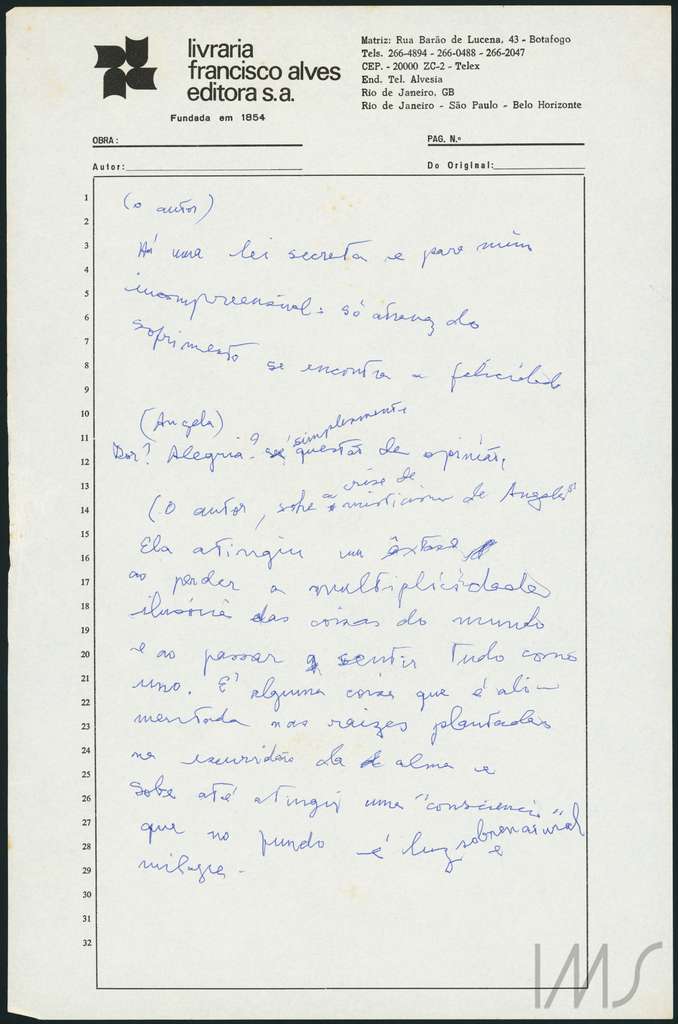 livraria
francisco alves
editora s.a.
Fundada em 1854
Matriz: Rua Barão de Lucena, 43 - Botafogo
Tels. 266-4894 - 266-0488 - 266-2047
CEP. - 20000 ZC-2 - Telex
End. Tel. Alvesia
Rio de Janeiro, GB
Rio de Janeiro - São Paulo - Belo Horizonte
OBRA:
PAG. N.º
Autor:
Do Original:
1
2
3
4
5
6
7
8
9
10
11
12
13
14
15
16
17
18
19
20
21
22
23
24
25
26
27
28
29
30
31
32
(o autor)
Há uma lei secreta e para mim
incompreensível: só através do
sofrimento se encontra a felicidade
(Angela)
Dor? Alegria? é simplesmente questão de opinião,
(O autor, sobre a crise de misticismo de Angela)
Ela atingiu um êxtase
ao perder a multiplicidade
ilusória das coisas do mundo
e ao passar a sentir tudo como
uno. É alguma coisa que é ali-
mentada nas raízes plantadas
na escuridão da alma e
sobe até atingir uma "consciencia"
que no fundo é luz sobrenatural e
milagre.
IMS